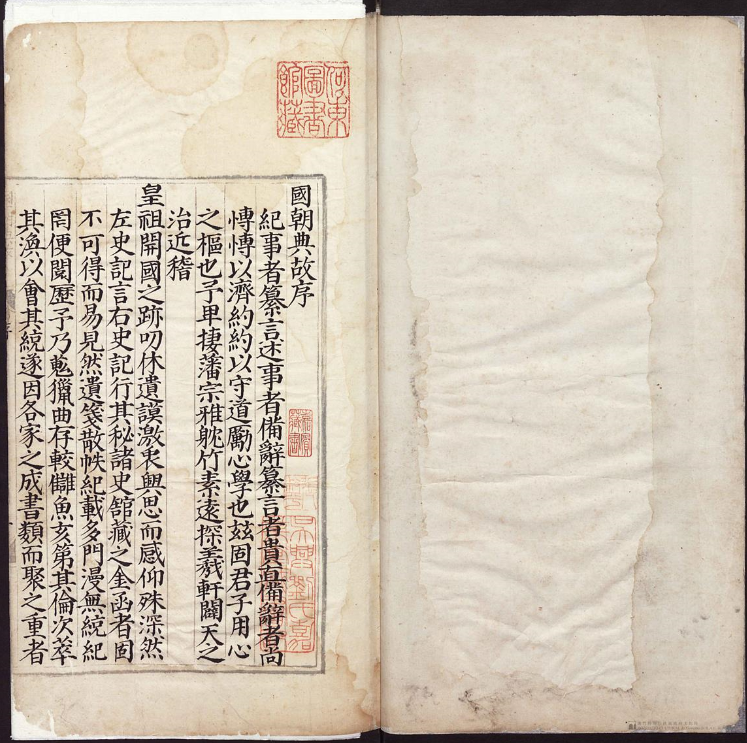 國朝典故序
紀事者纂言述事者備辭纂言者貴直備辭者尚
慱慱以濟約約以守道勵心學也茲固君子用心
之樞也予卑捿藩宗雅躭竹素遠探羲軒闢天之
治近稽
皇祖開國之跡叨休遺謨激衷興思而感仰殊深然
左史記言右史記行其秘諸史館藏之金函者固
不可得而易見然遺箋散帙紀載多門漫無統紀
罔便閱歷予乃蒐獵曲存較讎魚亥第其倫次萃
其渙以會其統遂因各家之成書類而聚之重者
河東圖書館藏
吳興劉氏嘉